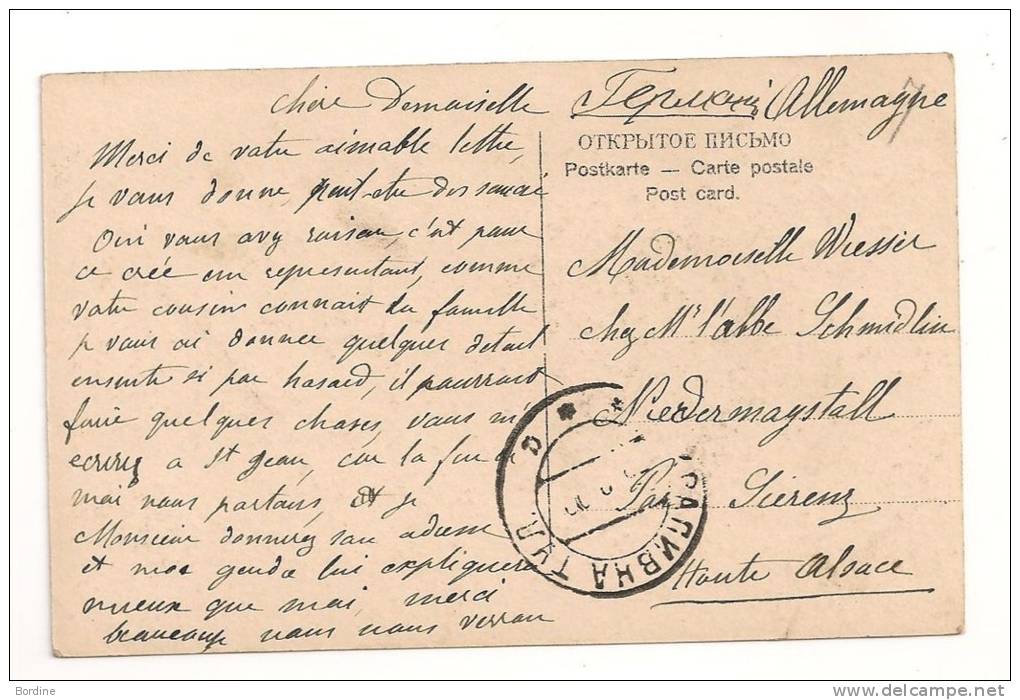 chère Demoiselle
Merci de votre aimable lettre,
je vous donne, peut-etre des
Oui vous avez raison c'est pour
ce representant, comme
votre cousin connait la famille
je vous ai donner quelques detail
ensuite si par hasard, il pourrait
faire quelques choses, vous m'
ecrirez a St Jean, car la fin
mai nous partons, et
Monsieur donnerez son adresse
et mon lui expliquera
mieux que moi, merci
beaucoup nous nous
Allemagne
ОТКРЫТОЕ ПИСЬМО
Postkarte — Carte postale
Post card.
Mademoiselle Wiesser
chez Mr l'abbe Schmidlin
Niedermagstall
Par Sierenz
Haute Alsace
КРАПИВНА ТУЛ.
Bordine
www.delcampe.net